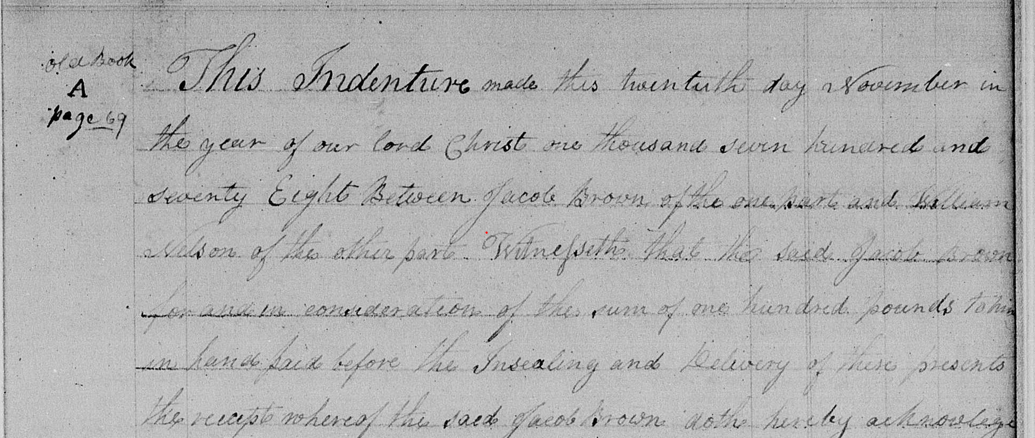 old Book
A
page 69
This Indenture made this twentuth day November in
the year of our lord Christ one thousand seven hundred and
seventy Eight Between Jacob Brown of the one part and William
Nelson of the other part Witnesseth that the said Jacob Brown
for and in consideration of the sum of one hundred pounds to him
in hand paid before the Insealing and Delivery of these presents
the recept whereof the said Jacob Brown doth hereby acknowlege